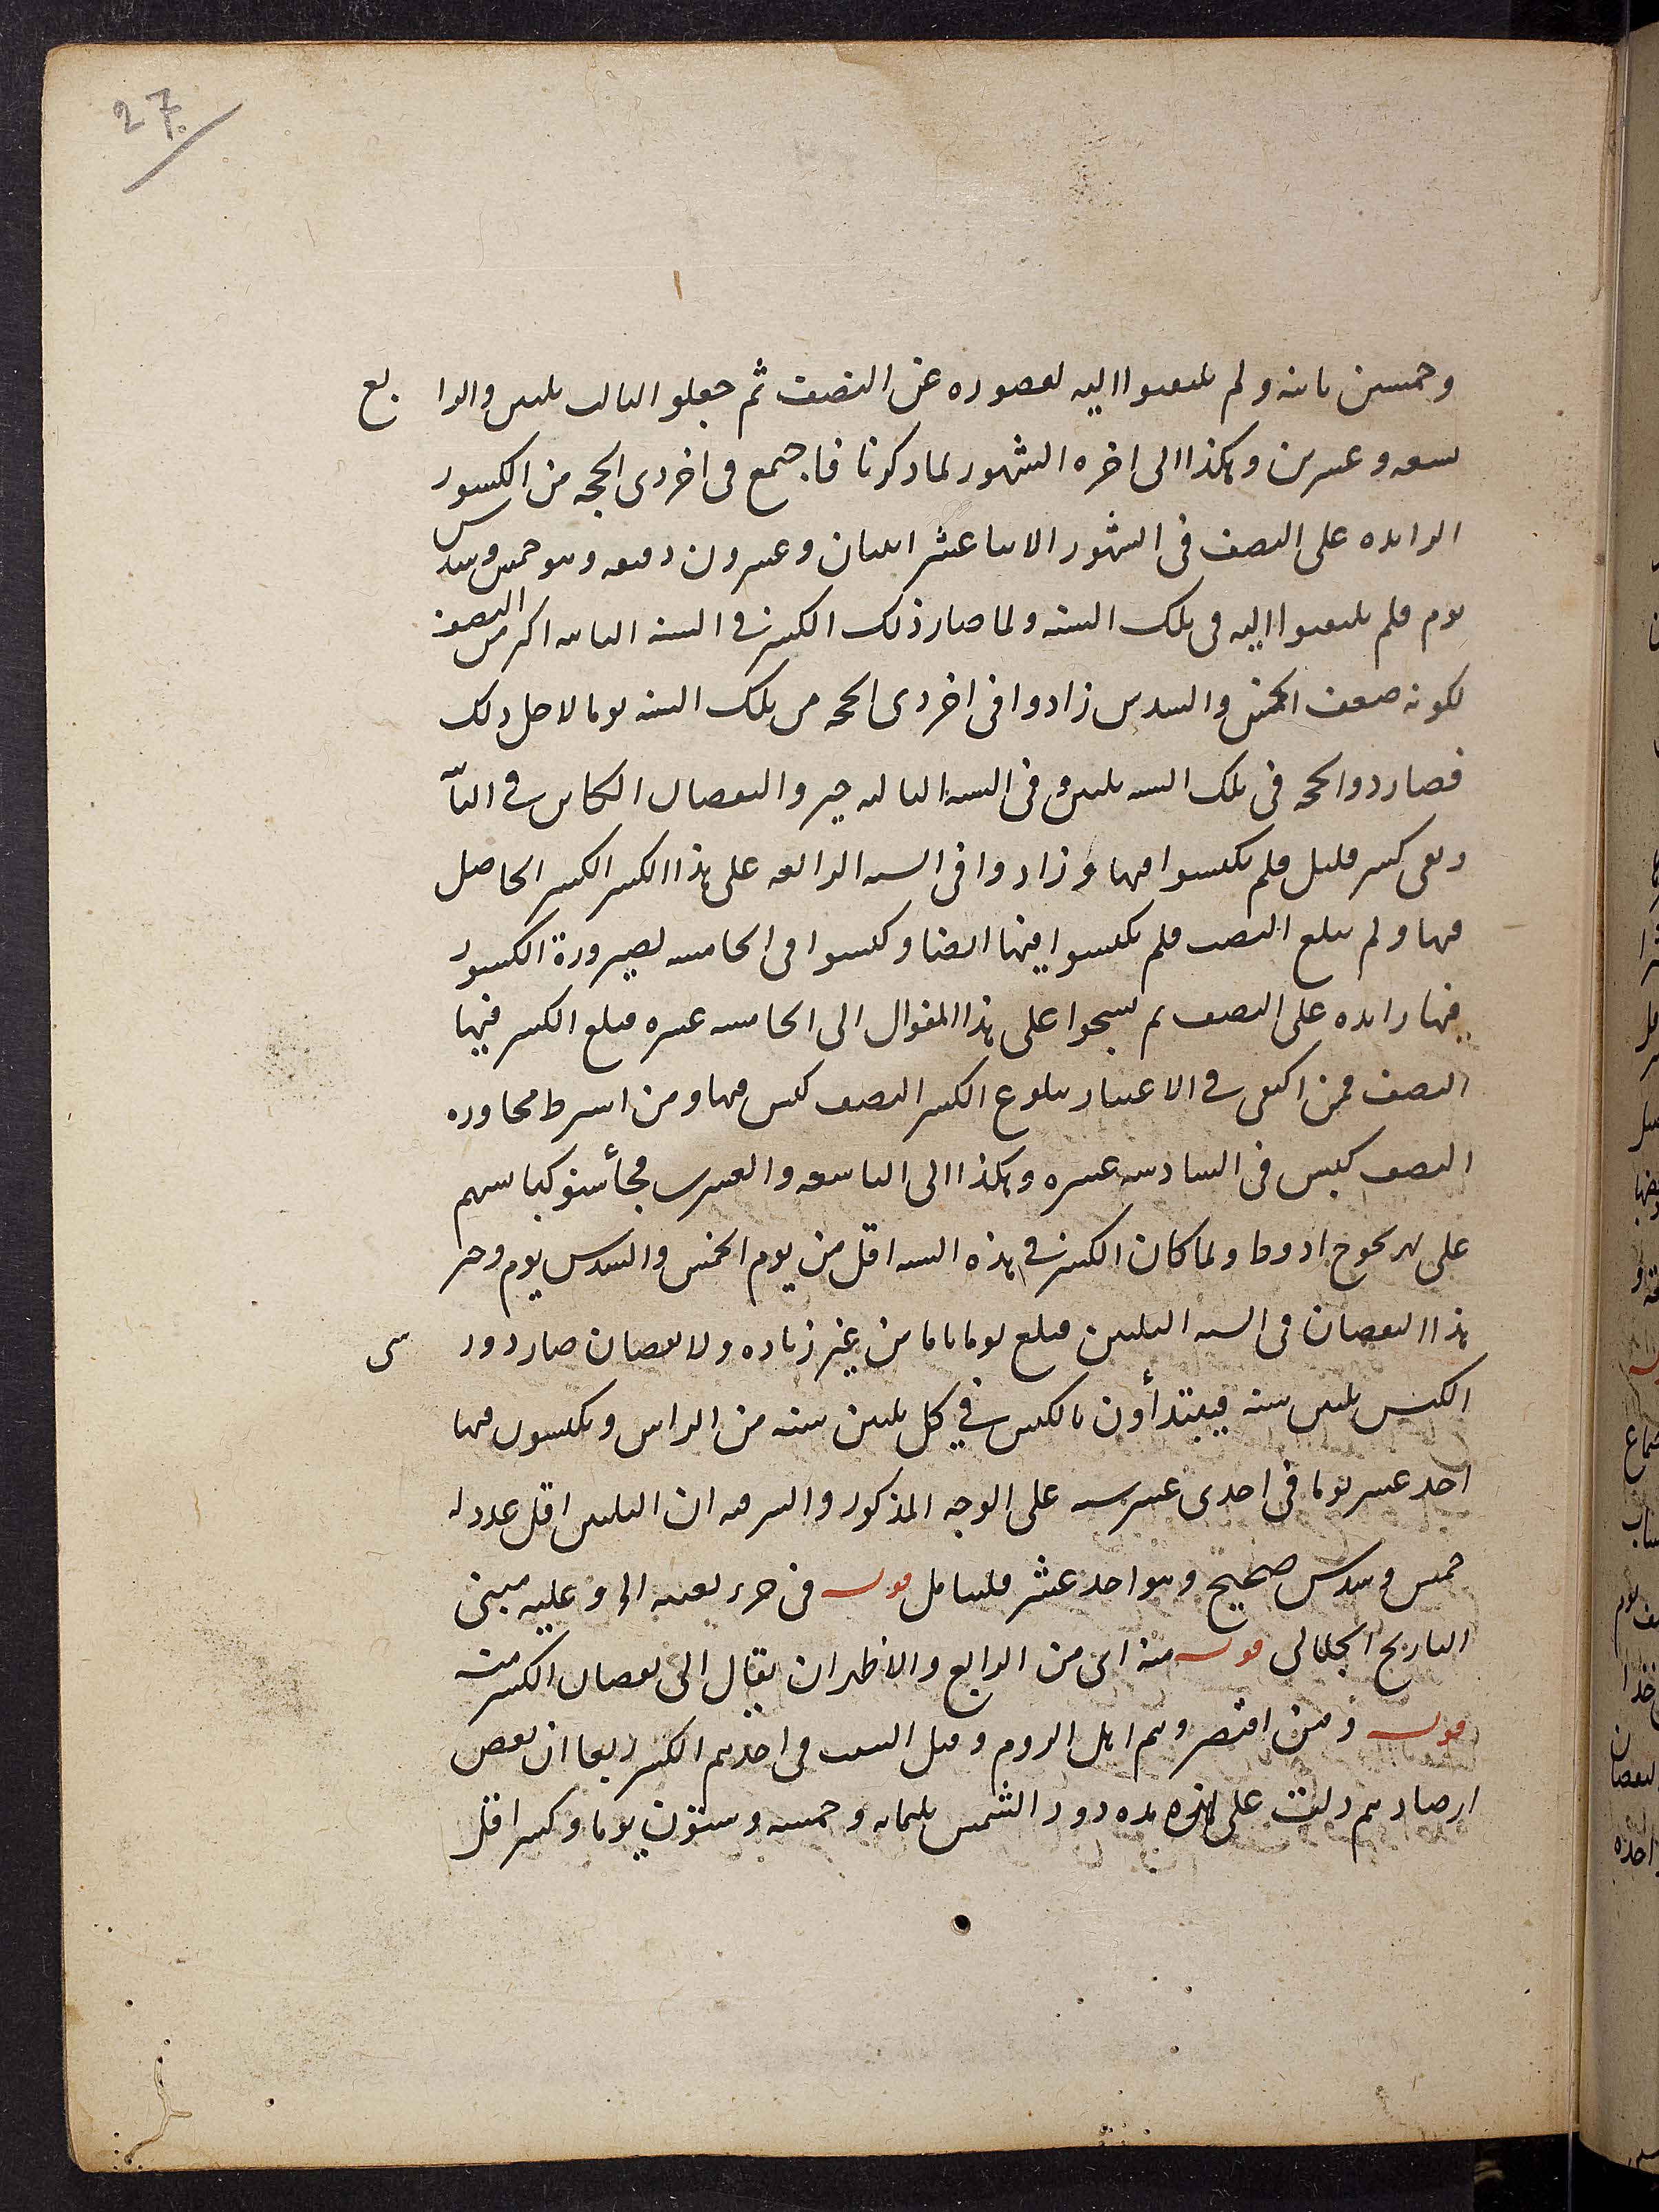 27.
وخمسين ثانية ولم يلتفتوا اليه لقصوره عن النصف ثم جعلوا الثالث ثلثين والرابع
تسعة وعشرين وهكذا الى اخره الشهور لما ذكرنا فاجتمع فى اخر ذى الحجه من الكسور
الزايده على النصف فى الشهور الاثنا عشر اثنان وعشرون دقيقه وهو خمس وسدس
يوم فلم يلتفتوا اليه فى تلك السنه ولما صار ذلك الكسر فى السنه الثانيه اكثر من النصف
لكونه ضعف الخمس والسدس زادوا فى اخر ذى الحجه من تلك السنه يوما لاجل ذلك
فصار ذوالحجه فى تلك السنه ثلثين وفى السنه الثالثه جبر والنقصان الكاين فى الثانيه
وبقى كسر قليل فلم يكبسوا فيها وزادوا فى السنه الرابعه على هذا الكسر الكسر الحاصل
فيها ولم يبلغ النصف فلم يكبسوا فيها ايضا وكبسوا فى الخامسه لصيرورة الكسور
فيها زايده على النصف ثم نسجوا على هذا المنوال الى الخامسه عشره فبلغ الكسر فيها
النصف فمن اكتفى فى الاعتبار ببلوغ الكسر النصف كبس فيها ومن اشترط مجاوزه
النصف كبس فى السادسه عشره وهكذا الى التاسعه والعشرين فجأت سنو كبايسهم
على بهزيجوح ادوط ولما كان الكسر فى هذه السنه اقل من يوم الخمس والسدس يوم وجبر
هذا النقصان فى السنه الثلثين فبلغ يوما تاما من غير زياده ولا نقصان صار دور
الكبس ثلثين سنه فيبتدأون بالكبس فى كل ثلثين سنه من الراس ويكبسون فيها
احد عشر يوما فى احدى عشر سنه على الوجه المذكور والسر فيه ان الثلثين اقل عدد له
خمس وسدس صحيح وهو احد عشر فليتامل قوله فى جزء بعينه الخ وعليه مبنى
التاريخ الجلالى قوله منه اى من الرابع والاظهر ان يقال الى نقصان الكسر منه
قوله ومن اقتصر وهم اهل الروم وقيل السبب فى اخذهم الكسر ربعا ان بعض
ارصادهم دلت على هذه مده دور الشمس ثلثمايه وخمسه وستون يوما وكسر اقل